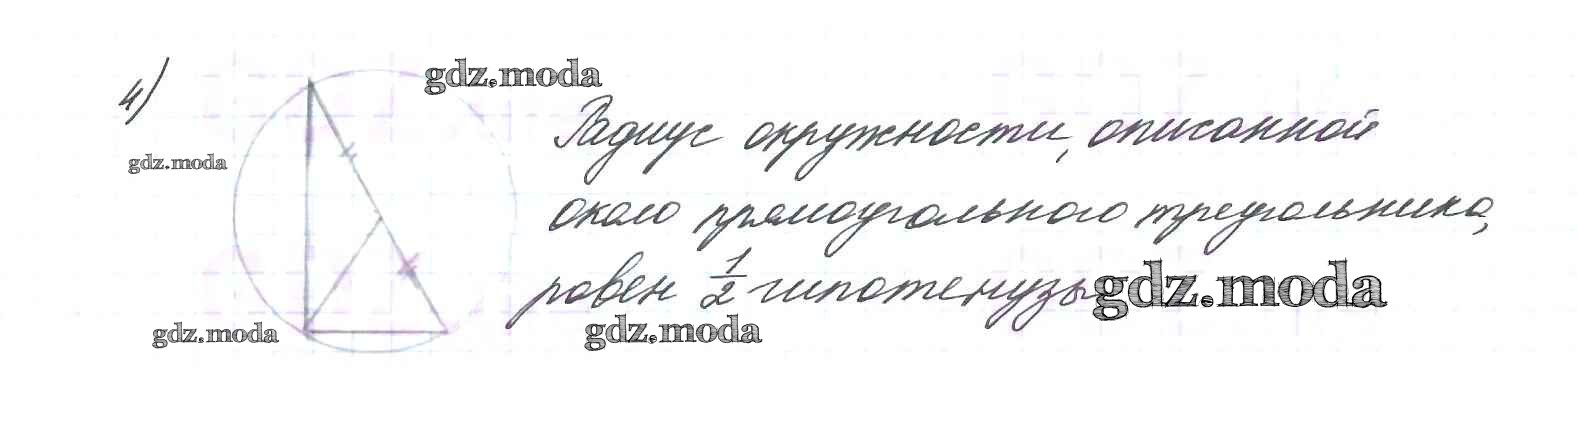 4)
gdz.moda
gdz.moda
Радиус окружности, описанной
около прямоугольного треугольника,
равен 1/2 гипотенузы
gdz.moda
gdz.moda
gdz.moda